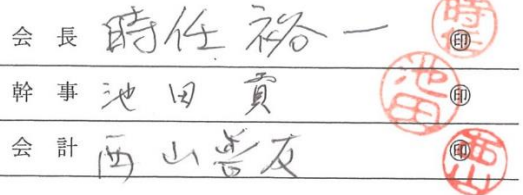 会長 時任 裕一 ㊞ 時任
幹事 池田 貢 ㊞ 池田
会計 西山 誉友 ㊞ 西山